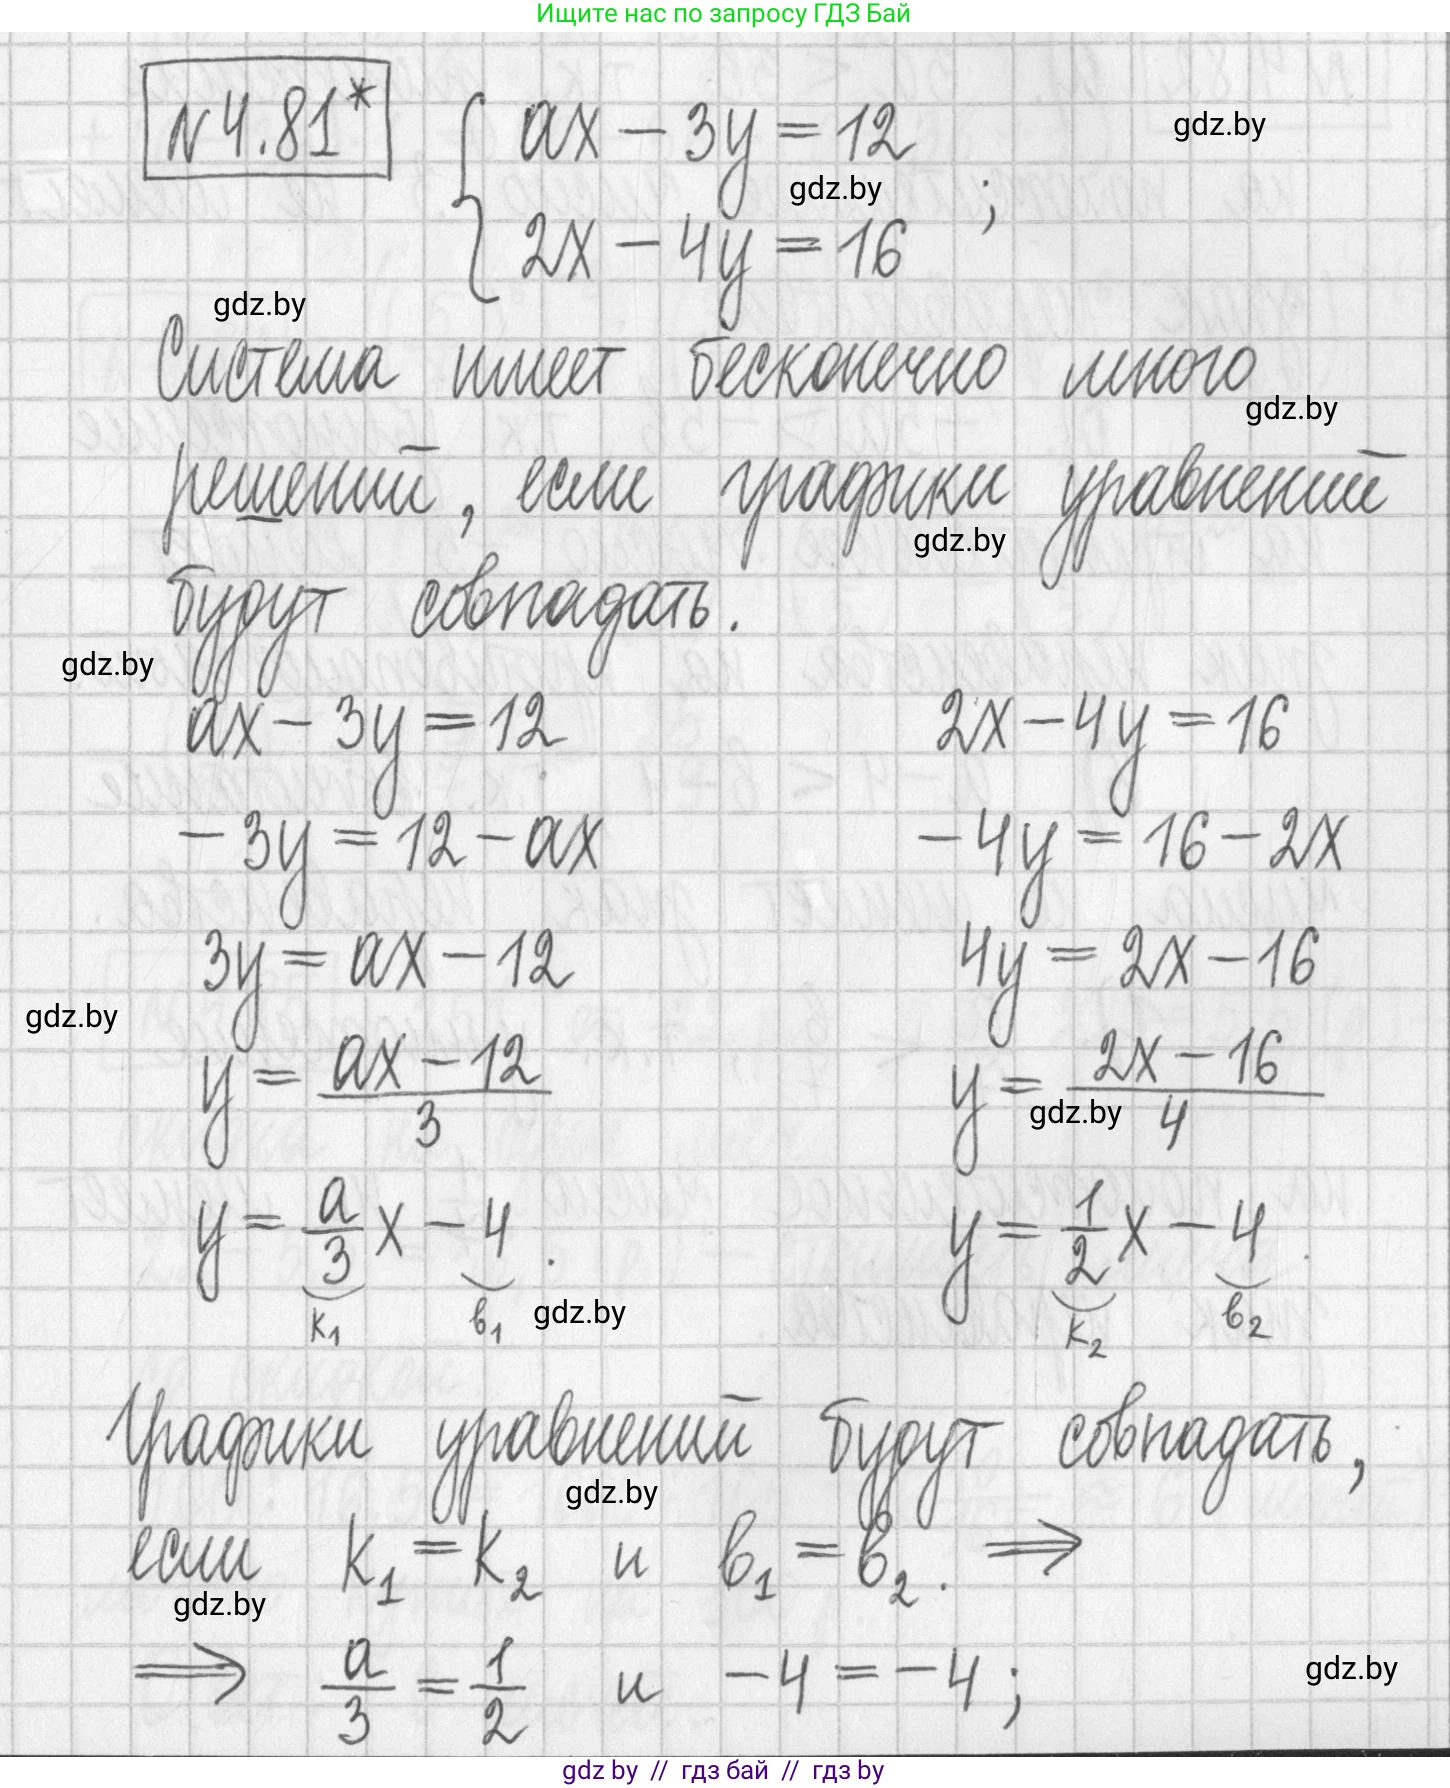 Ищите нас по запросу ГДЗ Бай
N4.81* { ax − 3y = 12
gdz.by
gdz.by
2x − 4y = 16 ;
gdz.by
Система имеет бесконечно много
gdz.by
решений, если графики уравнений
gdz.by
будут совпадать.
gdz.by
ax − 3y = 12 2x − 4y = 16
−3y = 12 − ax −4y = 16 − 2x
3y = ax − 12 4y = 2x − 16
gdz.by
y = (ax − 12)/3 y = (2x − 16)/4
gdz.by
y = a/3 x − 4. y = 1/2 x − 4.
k₁ в₁ gdz.by k₂ в₂
Графики уравнений будут совпадать,
gdz.by
если k₁ = k₂ и в₁ = в₂. ⇒
gdz.by
⇒ a/3 = 1/2 и −4 = −4;
gdz.by
gdz by // гдз бай // гдз by